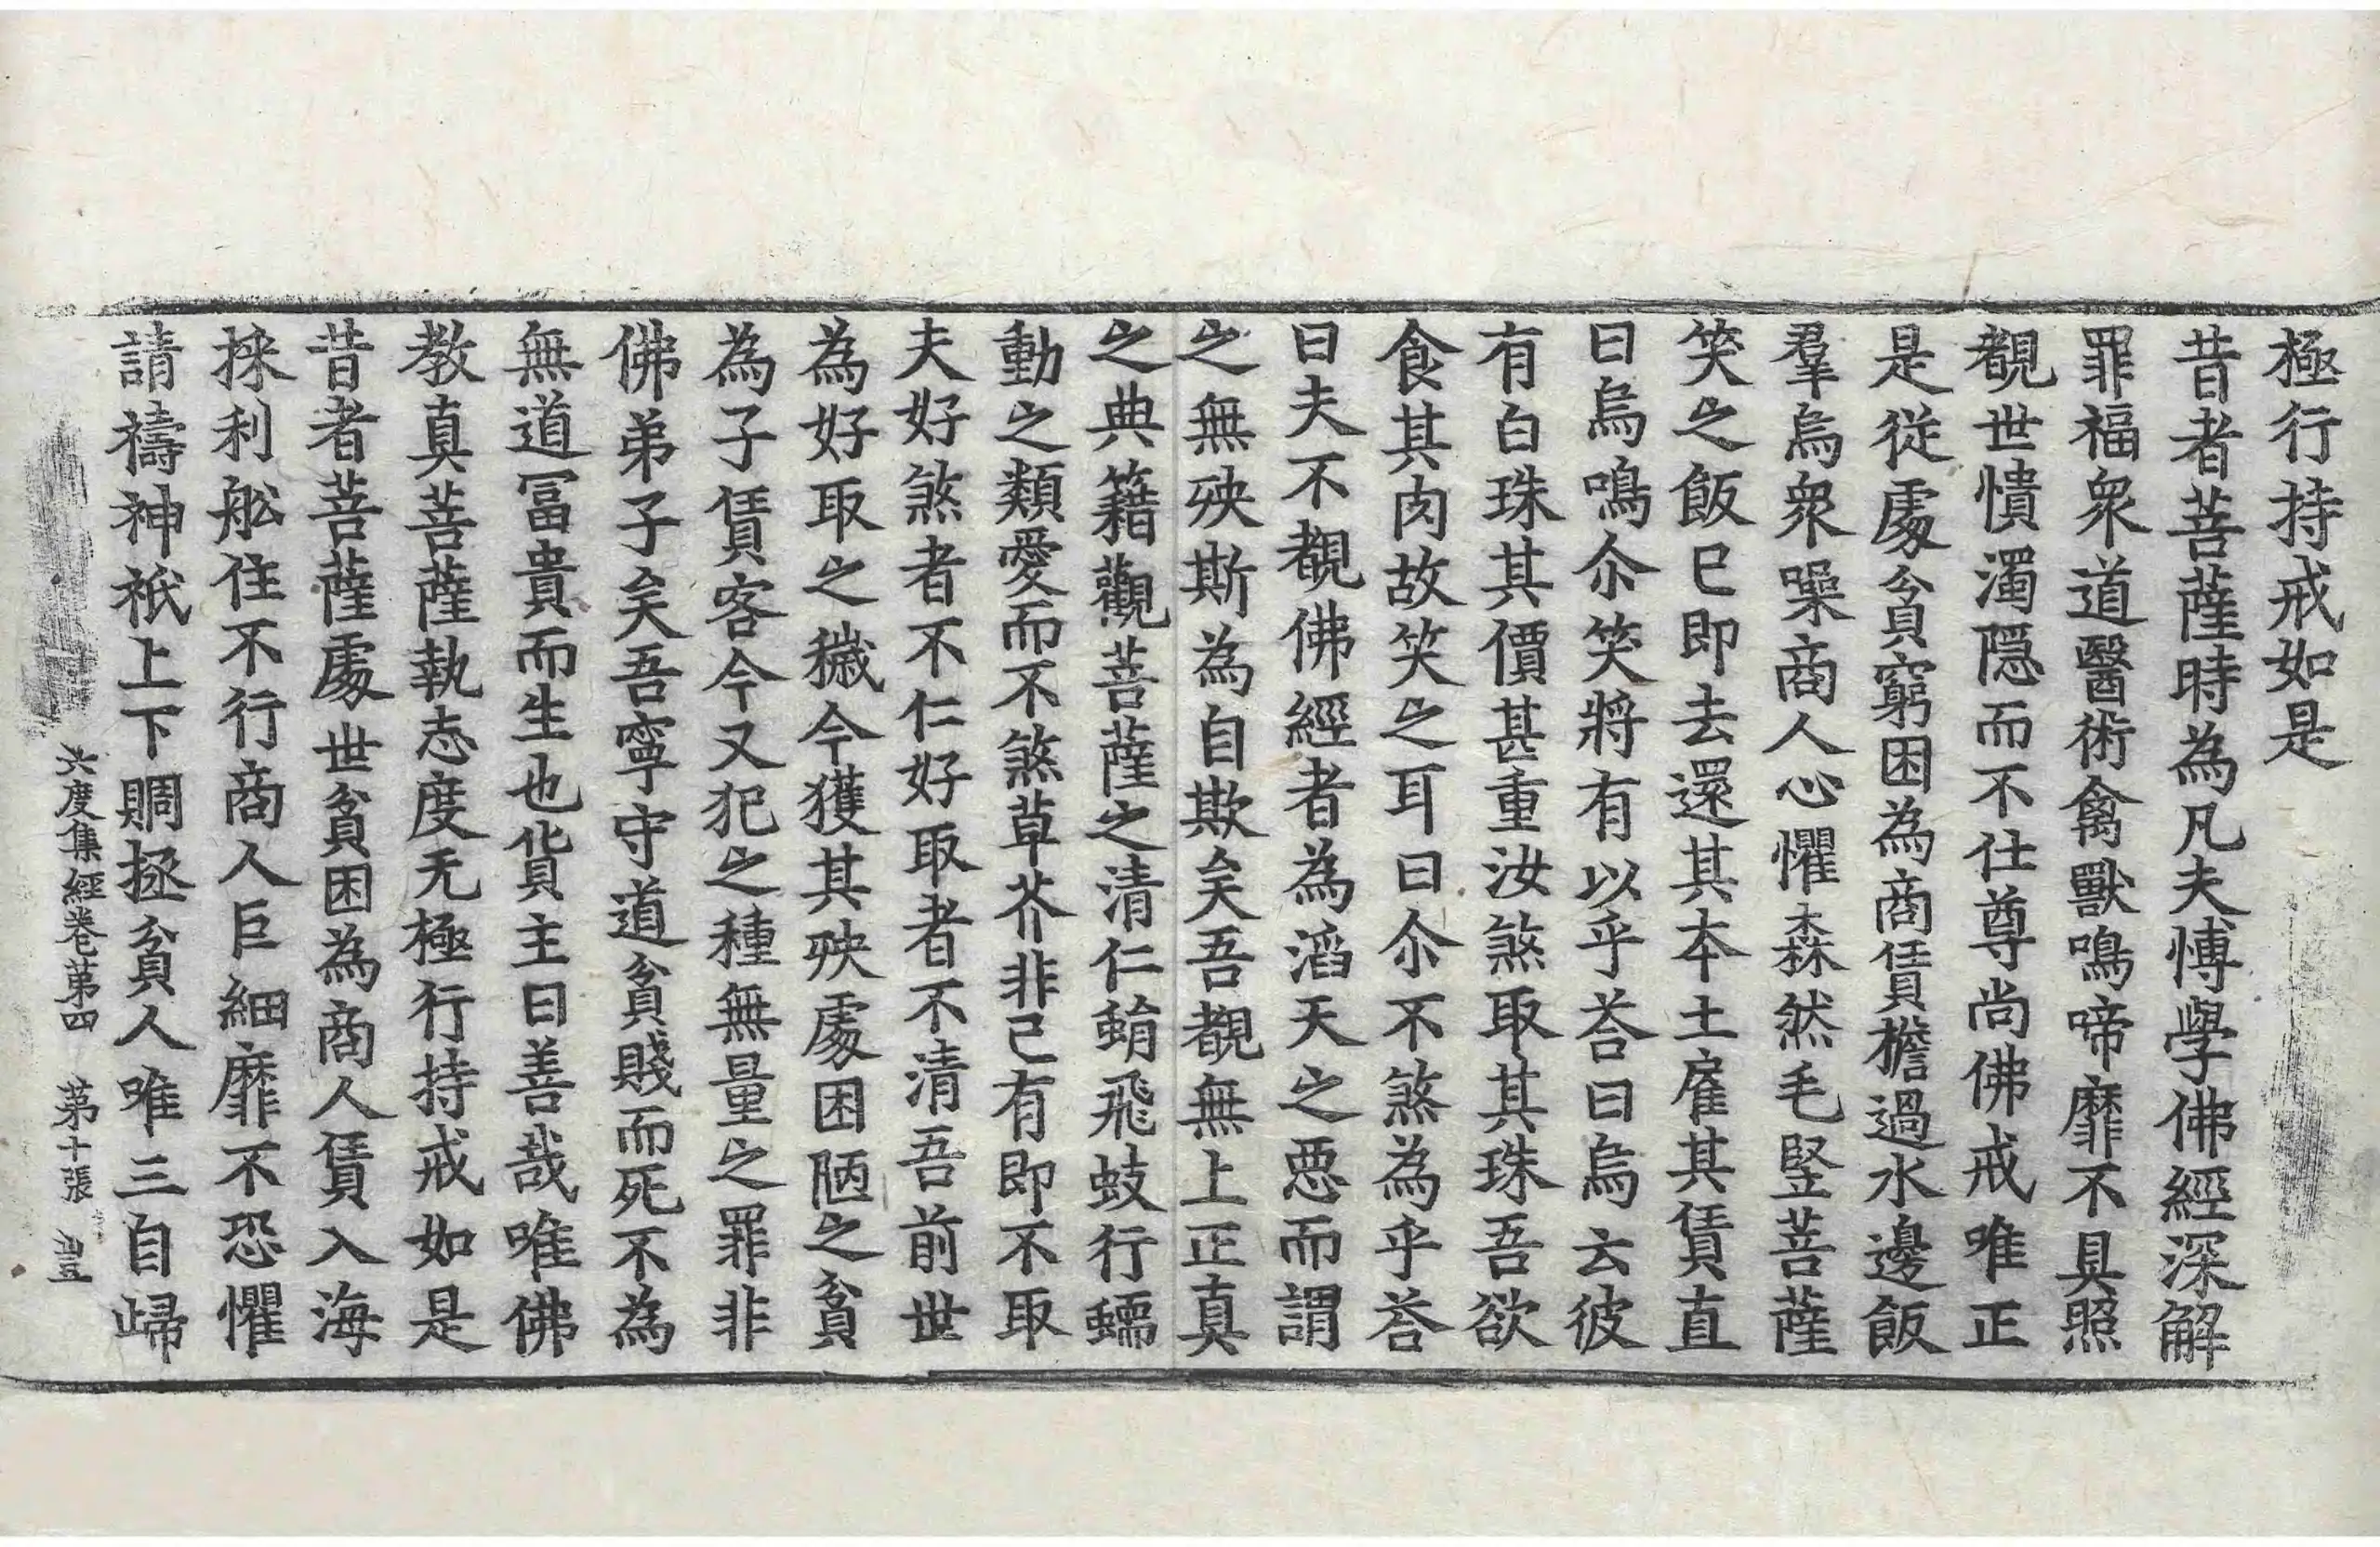 極行持戒如是
昔者菩薩時為凡夫愽學佛經深解
罪福衆道醫術禽獸鳴啼靡不具照
覩世憒濁隱而不仕尊尚佛戒唯正
是從處貧窮困為商賃檐過水邊飯
羣烏衆噪商人心懼森然毛竪菩薩
笑之飯已即去還其本土雇其賃直
曰烏鳴尒笑將有以乎荅曰烏云彼
有白珠其價甚重汝煞取其珠吾欲
食其肉故笑之耳曰尒不煞為乎荅
曰夫不覩佛經者為滔天之惡而謂
之無殃斯為自欺矣吾覩無上正真
之典籍觀菩薩之清仁蜎飛蚑行蠕
動之類愛而不煞草芥非己有即不取
夫好煞者不仁好取者不清吾前世
為好取之穢今獲其殃處困陋之貧
為子賃客今又犯之種無量之罪非
佛弟子矣吾寧守道貧賤而死不為
無道冨貴而生也貨主曰善哉唯佛
教真菩薩執志度无極行持戒如是
昔者菩薩處世貧困為商人賃入海
採利舩住不行商人巨細靡不恐懼
請禱神祇上下賙拯貧人唯三自歸
六度集經卷第四 第十張 豈